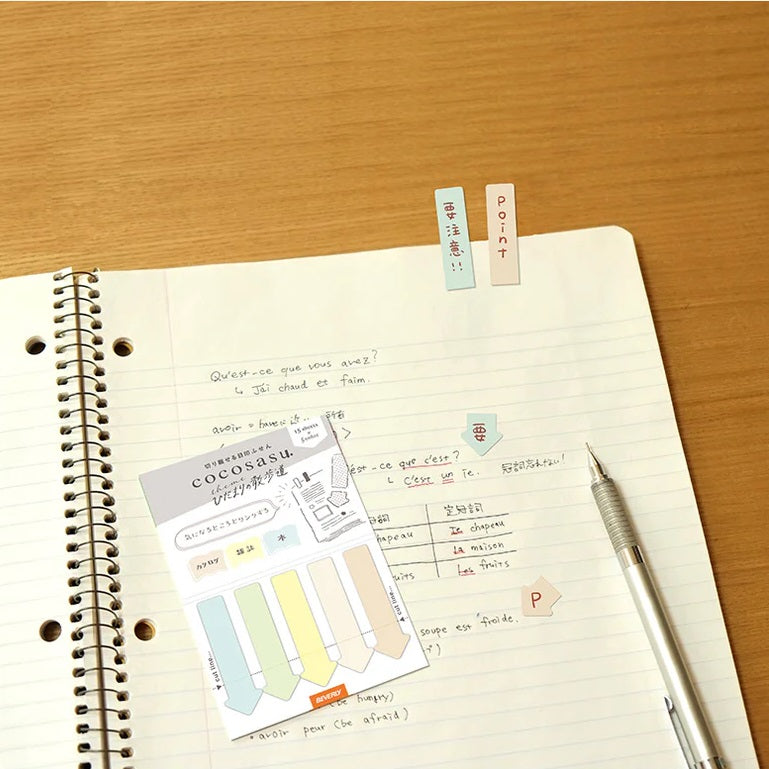 要注意!!
Point
Qu'est-ce que vous avez?
↳ J'ai chaud et faim.
avoir = haveに近い
要
est-ce que c'est?
↳ C'est un ie.
冠詞忘れない!
冠詞
定冠詞
chapeau
le chapeau
la maison
fruits
Les fruits
P
soupe est "froide.
(be hungry)
・avoir peur (be afraid)
15 sheets
×
5 color
切り離せる目印ふせん
cocosasu.
theme
ひだまりの散歩道
気になるところとリンクする
カタログ
雑誌
本
cut line...
cut line...
BEVERLY